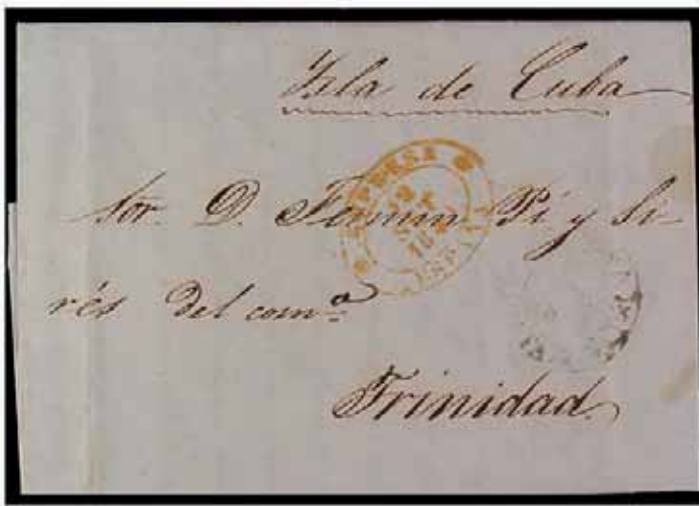 Isla de Cuba
Sor. D. Fermin Pi y Si-
rés del com.ª
Trinidad
ESPAÑA